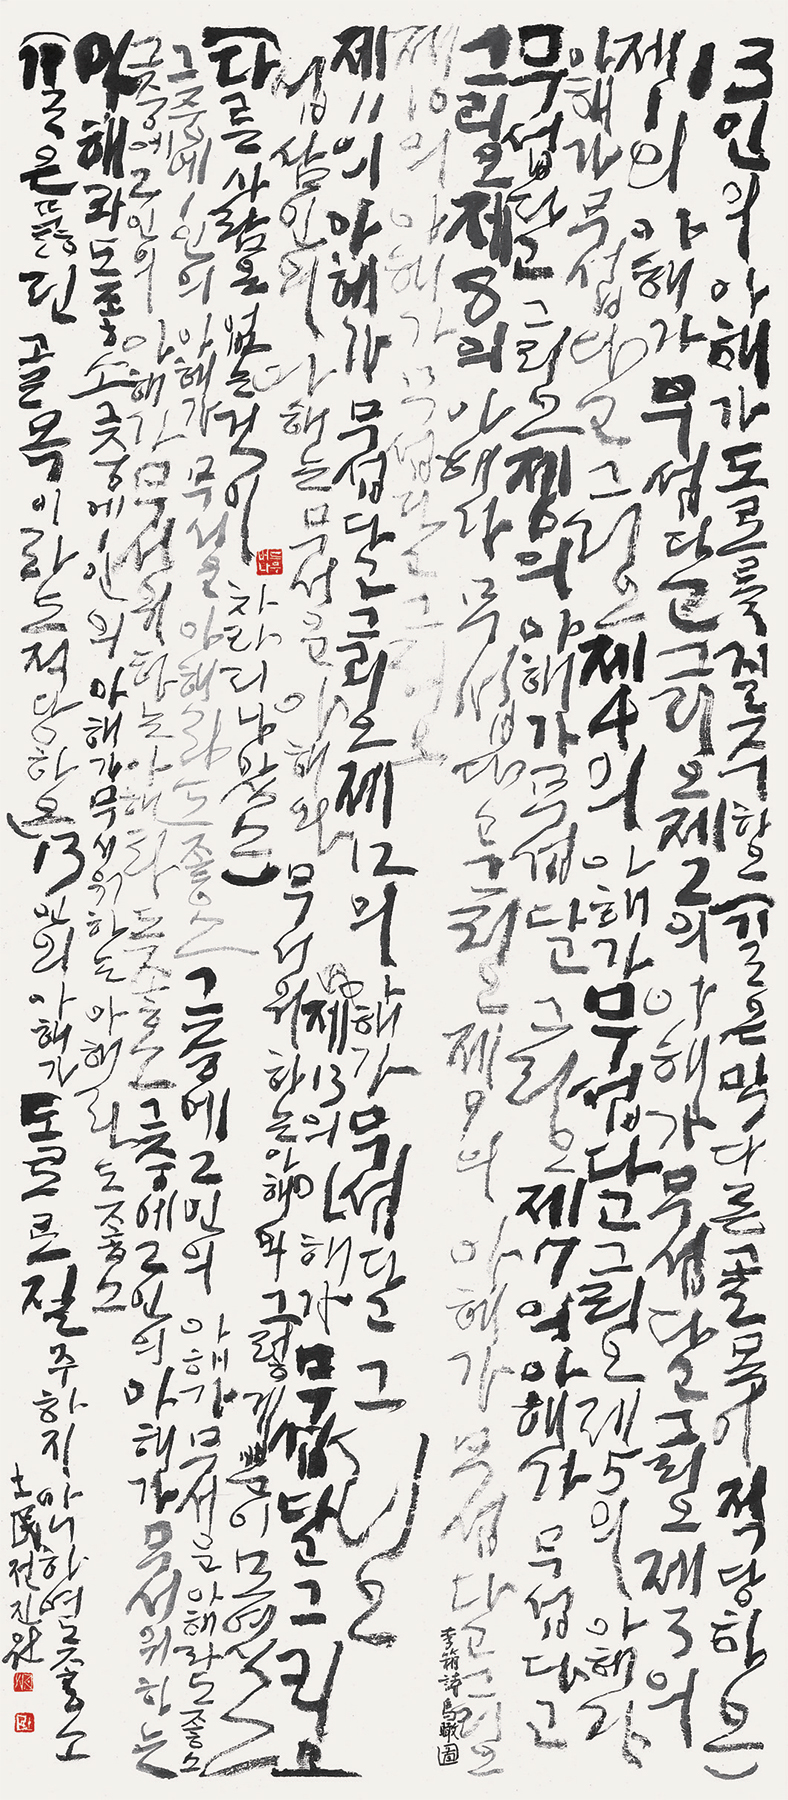 13인의아해가도로로질주하오(길은막다른골목이적당하오)
제1의아해가무섭다고그리오제2의아해가무섭다고그리오제3의
아해가무섭다고그리오제4의아해가무섭다고그리오제5의아해가
무섭다고그리오제6의아해가무섭다고그리오제7의아해가무섭다고
그리오제8의아해가무섭다고그리오제9의아해가무섭다고그리오
제10의아해가무섭다고그리오
李箱詩烏瞰圖
제11의아해가무섭다고그리오제12의아해가무섭다고그리오
제13의아해가무섭다고그리오
십삼인의아해는무서운아해와무서워하는아해와그렇게뿐이모였소
(다른사람은없는것이차라리나았소)
그중에1인의아해가무서운아해라도좋소그중에2인의아해가무서운아해라도좋소
그중에2인의아해가무서워하는아해라도좋소그중에2인의아해가무서워하는
아해라도좋소그중에1인의아해가무서워하는아해라도좋소
(길은뚫린골목이라도적당하오)13인의아해가도로로질주하지아니하여도좋소